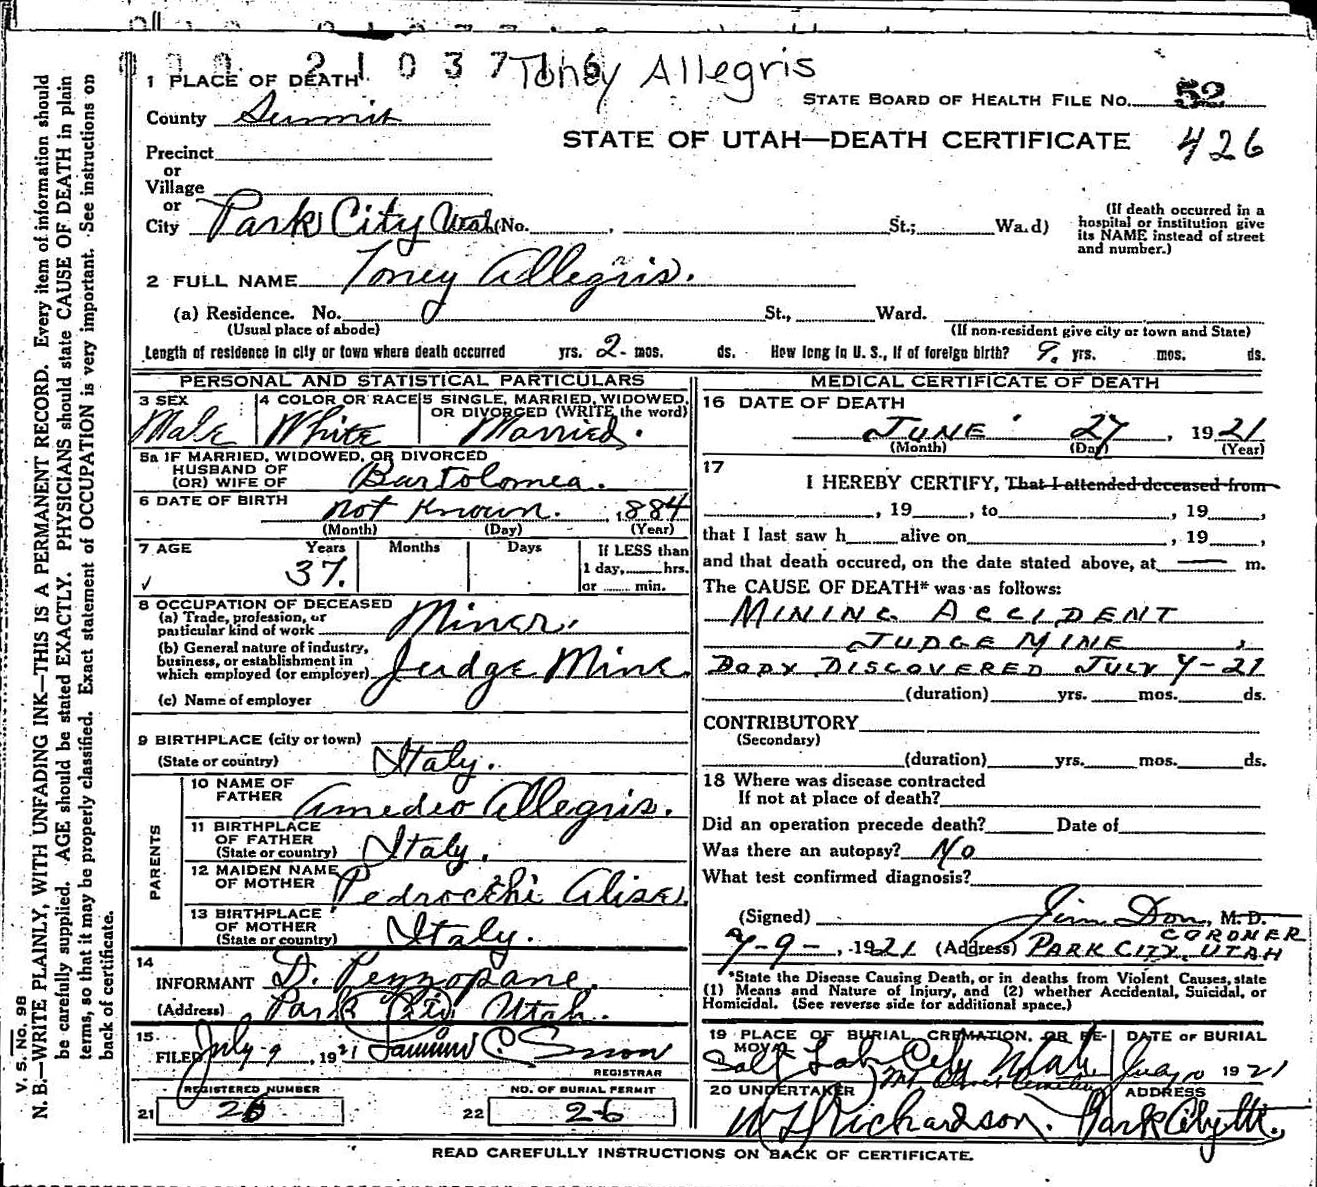 0 0 0 2 1 0 3 7 1 6
Toney Allegris
1 PLACE OF DEATH
STATE BOARD OF HEALTH FILE NO. 52
County Summit
STATE OF UTAH—DEATH CERTIFICATE 426
Precinct
or
Village
or
City Park City Utah (No. , St.; Ward)
(If death occurred in a hospital or institution give its NAME instead of street and number.)
2 FULL NAME Toney Allegris.
(a) Residence. No. St., Ward.
(Usual place of abode) (If non-resident give city or town and State)
Length of residence in city or town where death occurred yrs. 2 mos. ds. How long in U. S., if of foreign birth? 9. yrs. mos. ds.
PERSONAL AND STATISTICAL PARTICULARS
3 SEX
Male
4 COLOR OR RACE
White
5 SINGLE, MARRIED, WIDOWED, OR DIVORCED (WRITE the word)
Married.
5a IF MARRIED, WIDOWED, OR DIVORCED
HUSBAND OF
(OR) WIFE OF Bartolomea.
6 DATE OF BIRTH
not Known. , 1884
(Month) (Day) (Year)
7 AGE Years Months Days If LESS than
37. 1 day, hrs.
or min.
8 OCCUPATION OF DECEASED
(a) Trade, profession, or
particular kind of work Miner.
(b) General nature of industry,
business, or establishment in
which employed (or employer) Judge Mine.
(c) Name of employer
9 BIRTHPLACE (city or town)
(State or country) Italy.
PARENTS
10 NAME OF
FATHER Amedeo Allegris.
11 BIRTHPLACE
OF FATHER
(State or country) Italy.
12 MAIDEN NAME
OF MOTHER Pedrocchi Alise.
13 BIRTHPLACE
OF MOTHER
(State or country) Italy.
14
INFORMANT D. Pezzopane.
(Address) Park City Utah.
15
FILED July 9, 1921 C. Snow
REGISTRAR
REGISTERED NUMBER NO. OF BURIAL PERMIT
21 26 22 26
MEDICAL CERTIFICATE OF DEATH
16 DATE OF DEATH
JUNE 27, 1921
(Month) (Day) (Year)
17
I HEREBY CERTIFY, That I attended deceased from
, 19 , to , 19 ,
that I last saw h alive on , 19 ,
and that death occured, on the date stated above, at — m.
The CAUSE OF DEATH* was as follows:
MINING ACCIDENT
JUDGE MINE,
BODY DISCOVERED JULY 7-21
(duration) yrs. mos. ds.
CONTRIBUTORY
(Secondary)
(duration) yrs. mos. ds.
18 Where was disease contracted
If not at place of death?
Did an operation precede death? Date of
Was there an autopsy? No
What test confirmed diagnosis?
(Signed) Jim Don, M. D.
CORONER
7-9-, 1921 (Address) PARK CITY, UTAH
*State the Disease Causing Death, or in deaths from Violent Causes, state
(1) Means and Nature of Injury, and (2) whether Accidental, Suicidal, or
Homicidal. (See reverse side for additional space.)
19 PLACE OF BURIAL, CREMATION, OR REMOVAL DATE OF BURIAL
Salt Lake City Utah 10 1921
Mt. Olivet Cemetery
20 UNDERTAKER ADDRESS
Richardson. Park City Ut.
READ CAREFULLY INSTRUCTIONS ON BACK OF CERTIFICATE.
V. S. No. 98
N. B.—WRITE PLAINLY, WITH UNFADING INK—THIS IS A PERMANENT RECORD. Every item of information should
be carefully supplied. AGE should be stated EXACTLY. PHYSICIANS should state CAUSE OF DEATH in plain
terms, so that it may be properly classified. Exact statement of OCCUPATION is very important. See instructions on
back of certificate.